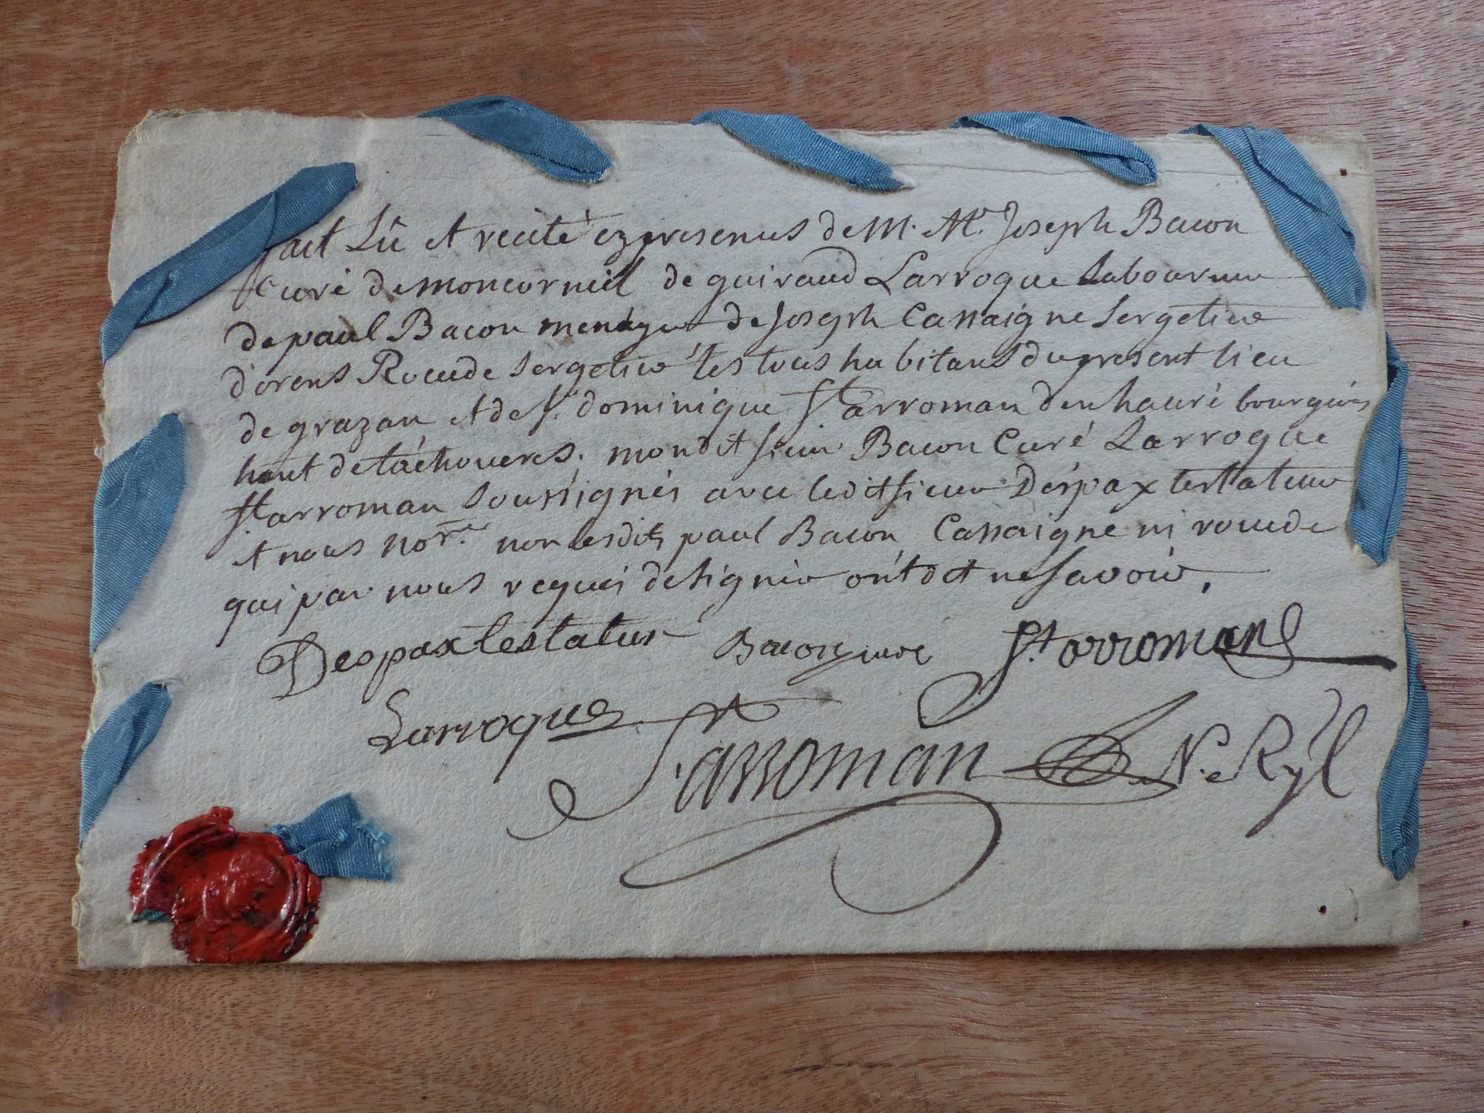 fait Lû et recité ez presences de M. Me. Joseph Bacon
Curé de moncorneil de guiraud Larroque Laboureur
de paul Bacon menager de Joseph Cassaigne Sergetier
d'orens Roucde Sergetier tes tous habitans du present lieu
de grazan et de Sr. dominique St arroman bourgeois
hant de tachoueres. mondit sieur Bacon Curé Larroque
St arroman soussignés avec ledit sieur Despax testateur
et nous nore. non lesdits paul Bacon Cassaigne ni roucde
qui par nous requis de signer ont dit ne savoir.
Despax testatur Bacon curé St arroman
Larroque
St arroman N.e Ryl